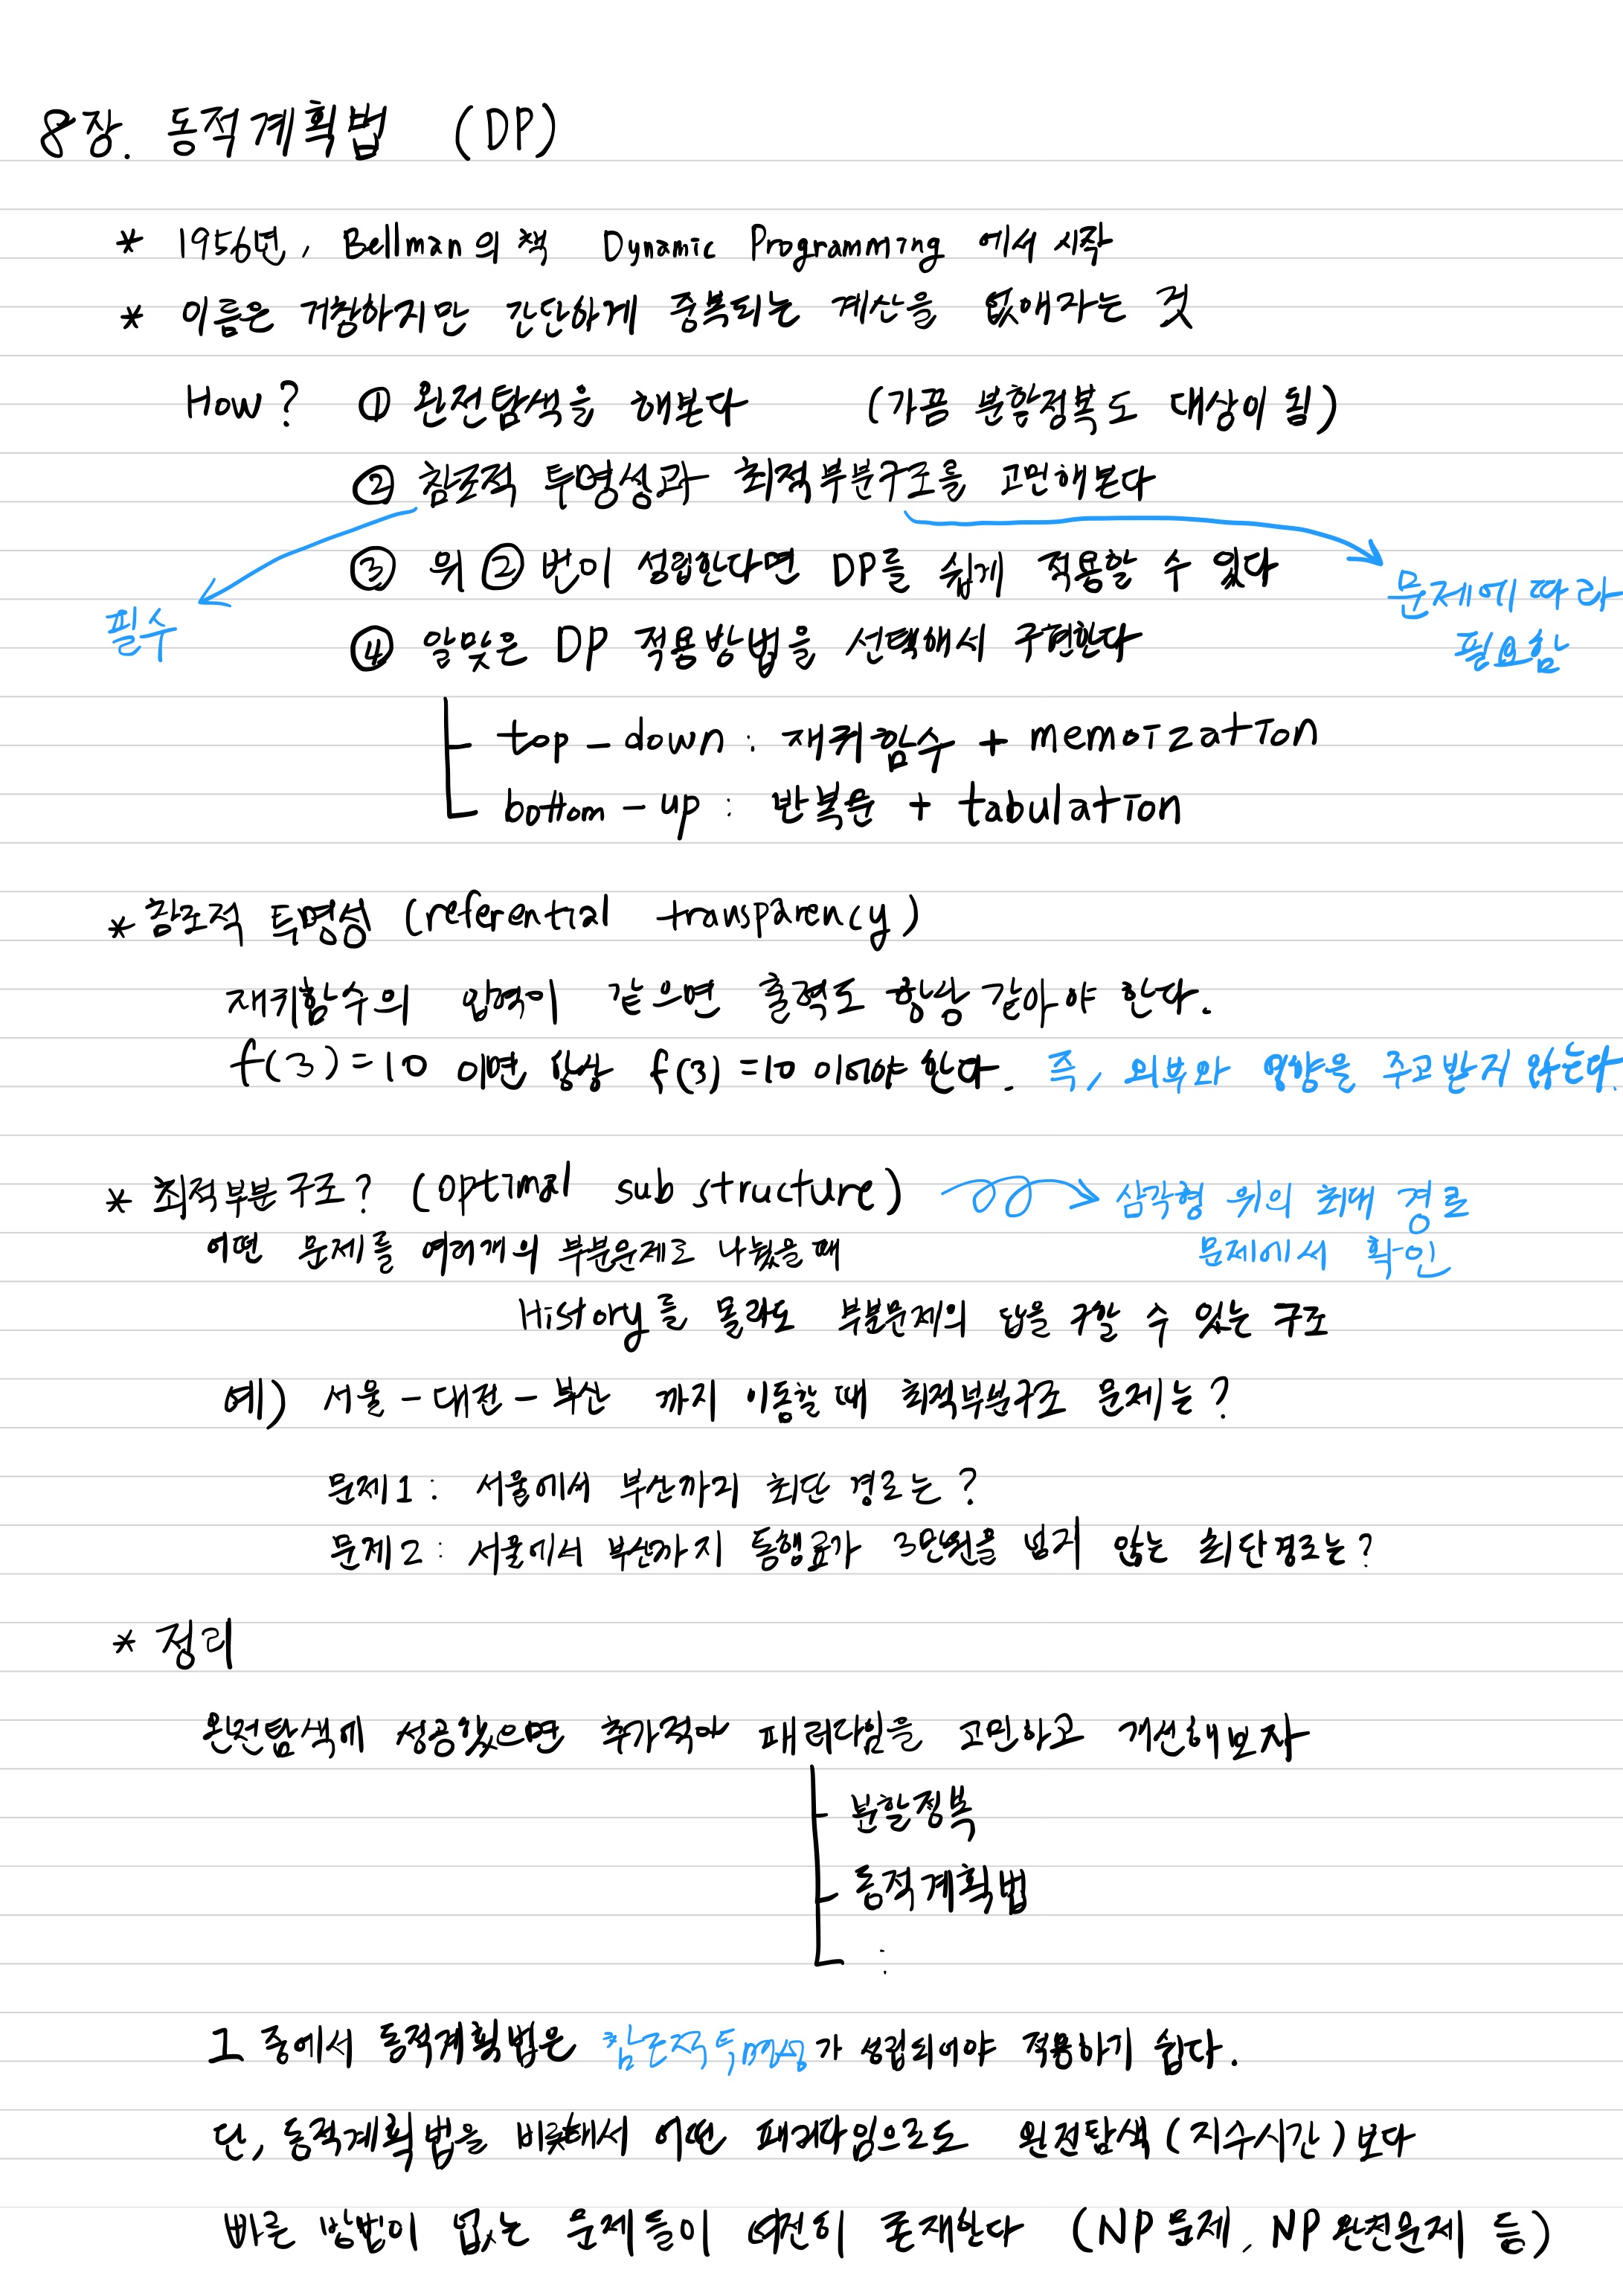 8장. 동적계획법 (DP)
* 1956년, Bellman의 책 Dynamic Programming 에서 시작
* 이름은 거창하지만 간단하게 중복되는 계산을 없애자는 것
How? ① 완전탐색을 해본다 (가끔 분할정복도 대상이 됨)
② 참조적 투명성과 최적부분구조를 고민해본다
③ 위 ②번이 성립한다면 DP를 쉽게 적용할 수 있다
필수
문제에 따라
필요함
④ 알맞은 DP 적용방법을 선택해서 구현한다
top-down : 재귀함수 + memoization
bottom-up : 반복문 + tabulation
* 참조적 투명성 (referential transparency)
재귀함수의 입력이 같으면 출력도 항상 같아야 한다.
f(3)=10 이면 항상 f(3)=10 이어야 한다. 즉, 외부와 영향을 주고받지 않는다.
* 최적부분구조? (optimal substructure) 삼각형 위의 최대 경로
문제에서 확인
어떤 문제를 여러개의 부분문제로 나눴을 때
History를 몰라도 부분문제의 답을 구할 수 있는 구조
예) 서울-대전-부산 까지 이동할 때 최적부분구조 문제는?
문제1 : 서울에서 부산까지 최단 경로는?
문제2 : 서울에서 부산까지 통행료가 3만원을 넘지 않는 최단경로는?
* 정리
완전탐색에 성공했으면 추가적인 패러다임을 고민하고 개선해보자
분할정복
동적계획법
:
그 중에서 동적계획법은 참조적투명성가 성립되어야 적용하기 쉽다.
단, 동적계획법을 비롯해서 어떤 패러다임으로도 완전탐색(지수시간)보다
빠른 방법이 없는 문제들이 여전히 존재한다 (NP문제, NP완전문제 등)